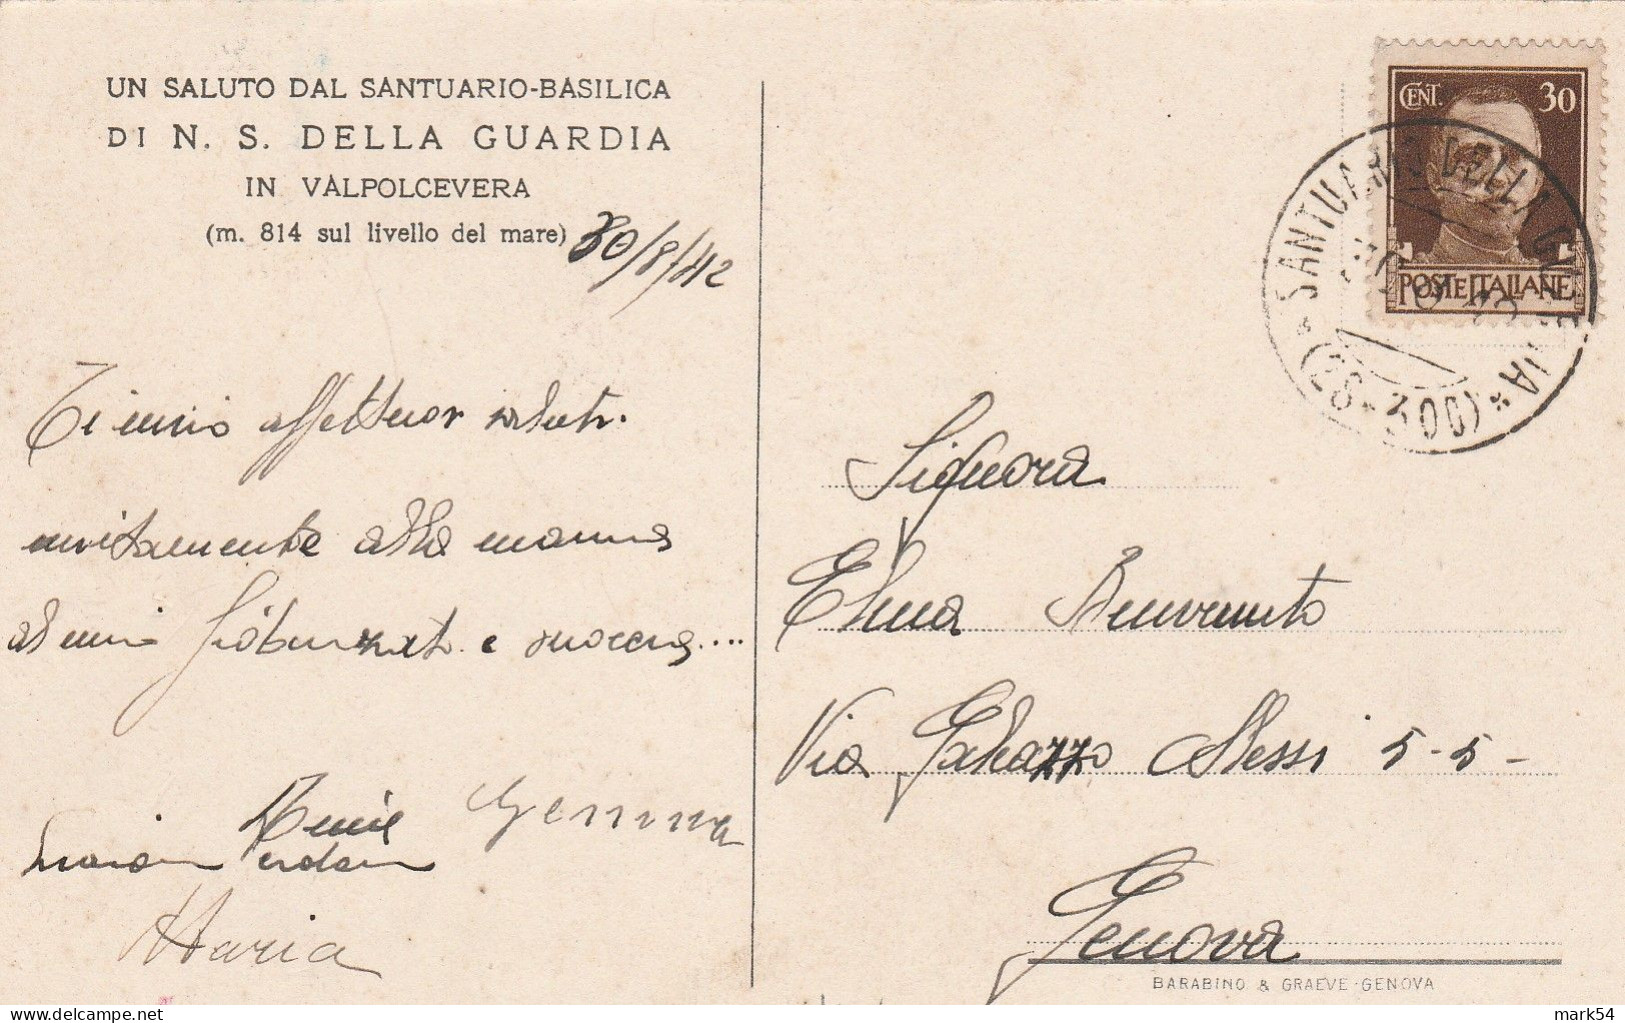 UN SALUTO DAL SANTUARIO-BASILICA
DI N. S. DELLA GUARDIA
IN VALPOLCEVERA
(m. 814 sul livello del mare)
30/8/42
Ti invio affettuosi saluti
unitamente alla mamma
ai miei e suocera....
Gemma
Maria
CENT. 30
POSTE ITALIANE
* SANTUARIO DELLA GUARDIA * (28-300)
Signora
Elena Benvenuto
Via Galeazzo Alessi 5-5-
Genova
BARABINO & GRAEVE-GENOVA
mark54